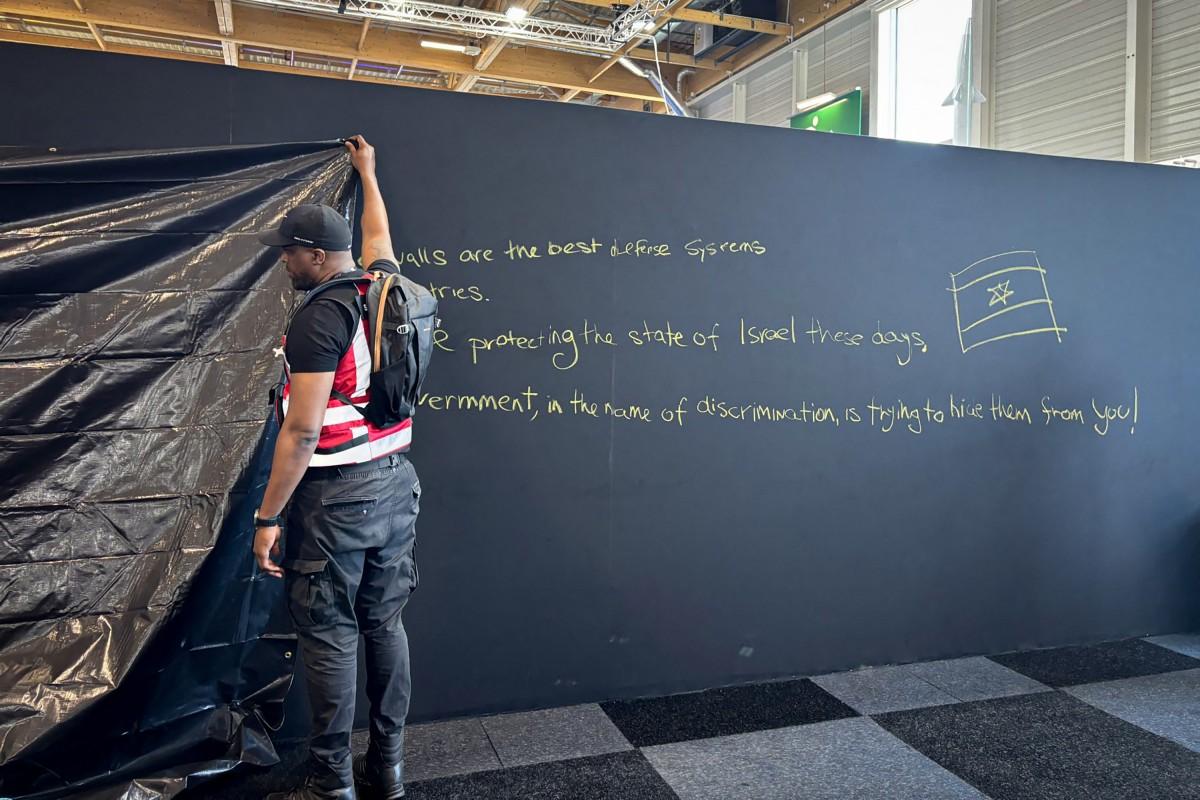 walls are the best defense Systems
tries.
protecting the state of Israel these days,
vernment, in the name of discrimination, is trying to hide them from you!